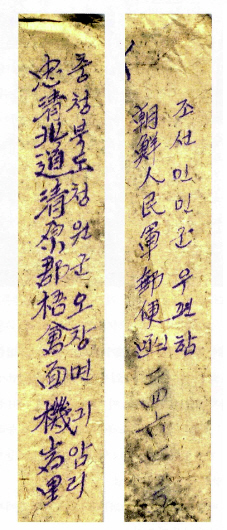 조선인민군 우편함
朝鮮人民軍郵便函
충청북도청원군오장면기암리
忠清北道清原郡梧倉面機岩里